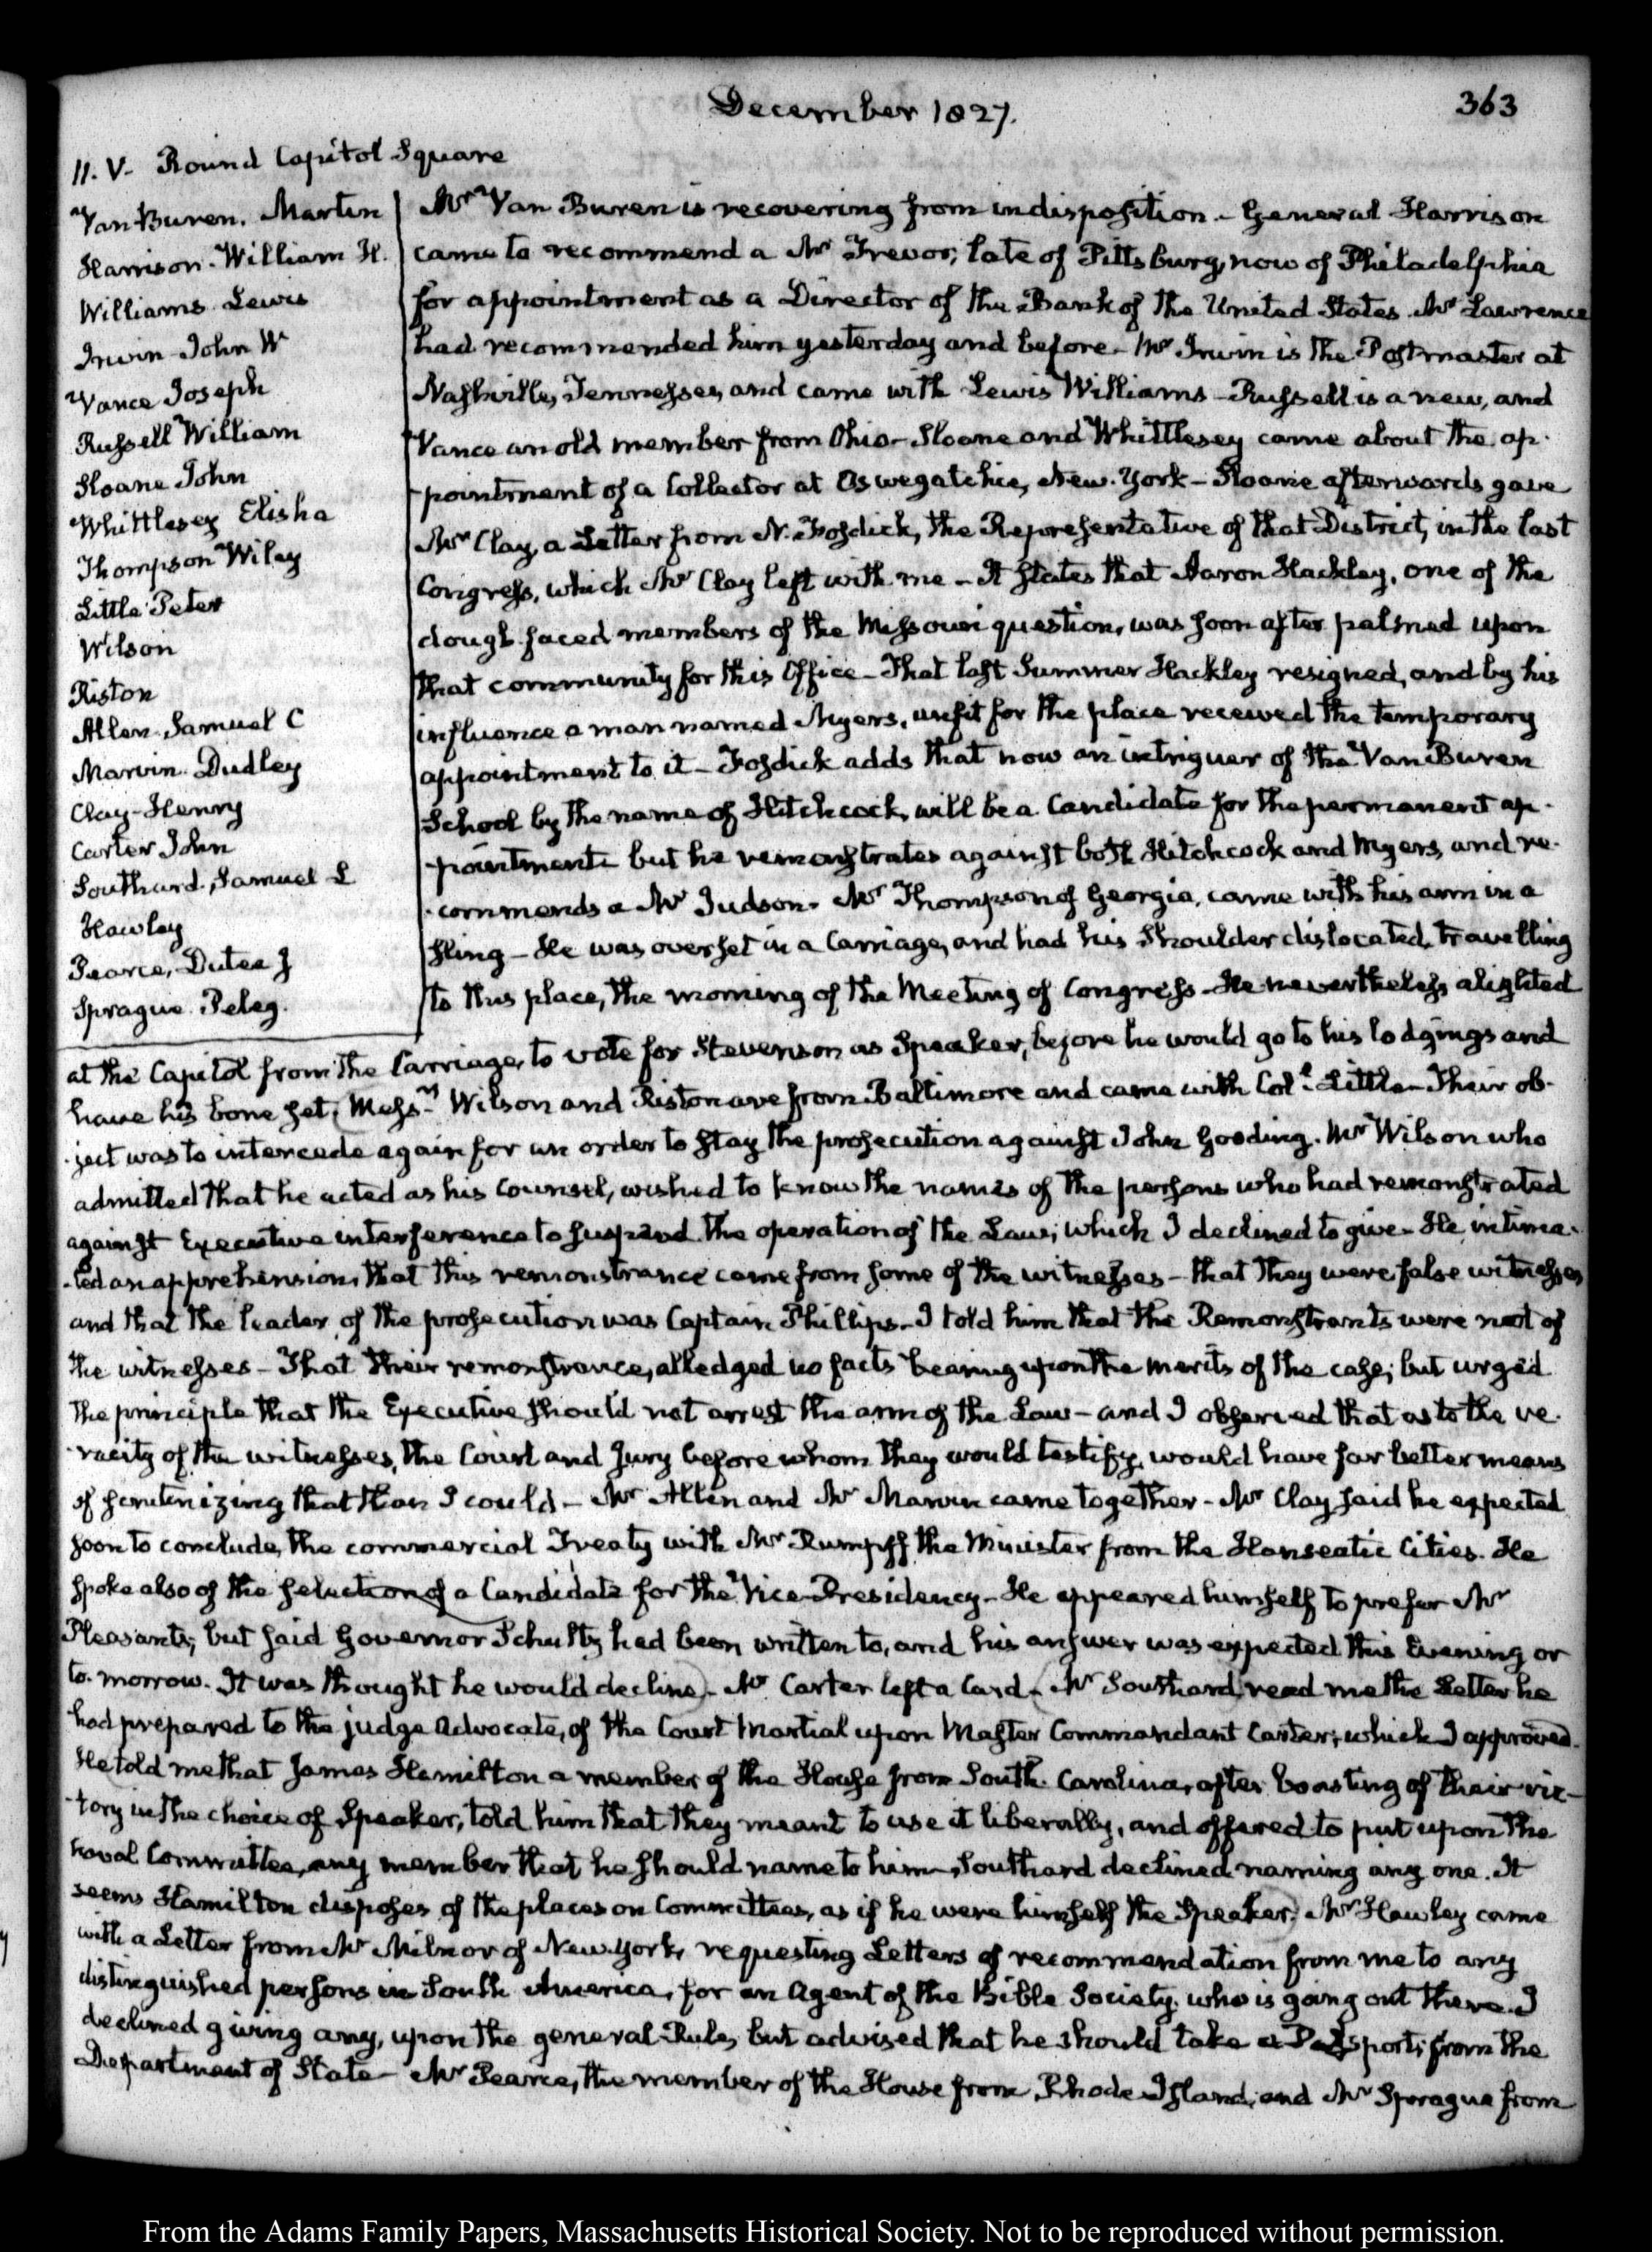 December 1827.
363
11. V. Round Capitol Square
Van Buren. Martin
Harrison. William H.
Williams Lewis
Irwin John W
Vance Joseph
Russell William
Sloane John
Whittlesey Elisha
Thompson Wiley
Little Peter
Wilson
Riston
Allen. Samuel C
Marvin. Dudley
Clay-Henry
Carter John
Southard. Samuel L
Hawley
Pearce, Dutee J
Sprague. Peleg.
Mr. Van Buren is recovering from indisposition - General Harrison
came to recommend a Mr Trevor, late of Pittsburg, now of Philadelphia
for appointment as a Director of the Bank of the United States. Mr Lawrence
had recommended him yesterday and before - Mr Irwin is the Postmaster at
Nashville, Tennessee, and came with Lewis Williams - Russell is a new, and
Vance an old member from Ohio - Sloane and Whittlesey came about the ap-
-pointment of a Collector at Oswegatchie, New-York - Sloane afterwards gave
Mr Clay, a Letter from N. Fosdick, the Representative of that District, in the last
Congress, which Mr Clay left with me - It states that Aaron Hackley, one of the
dough faced members of the Missouri question, was soon after palmed upon
that community for this Office - That last Summer Hackley resigned, and by his
influence a man named Myers, unfit for the place received the temporary
appointment to it - Fosdick adds that now an intriguer of the Van Buren
School by the name of Hitchcock, will be a Candidate for the permanent ap-
-pointment but he remonstrates against both Hitchcock and Myers, and re-
-commends a Mr Judson. Mr Thompson of Georgia, came with his arm in a
sling - He was overset in a Carriage, and had his Shoulder dislocated, travelling
to this place, the morning of the Meeting of Congress - He nevertheless alighted
at the Capitol from the Carriage, to vote for Stevenson as Speaker, before he would go to his lodgings and
have his bone set. Messrs Wilson and Riston are from Baltimore and came with Coll. Little - Their ob-
-ject was to intercede again for an order to stay the prosecution against John Gooding. Mr Wilson who
admitted that he acted as his Counsel, wished to know the names of the persons who had remonstrated
against Executive interference to suspend the operation of the Law; which I declined to give - He intima-
-ted an apprehension, that this remonstrance came from some of the witnesses - that they were false witnesses
and that the leader of the prosecution was Captain Phillips - I told him that the Remonstrants were not of
the witnesses - That their remonstrance, alledged no facts bearing upon the merits of the case; but urged
the principle that the Executive should not arrest the arm of the Law - and I observed that as to the ve-
-racity of the witnesses, the Court and Jury before whom they would testify, would have far better means
of scrutenizing that than I could - Mr Allen and Mr Marvin came together - Mr Clay said he expected
soon to conclude, the commercial Treaty with Mr Rumpff the Minister from the Hanseatic Cities. He
spoke also of the selection of a Candidate for the Vice-Presidency - He appeared himself to prefer Mr
Pleasants; but said Governor Schultz had been written to, and his answer was expected this Evening or
to-morrow. It was thought he would decline - Mr Carter left a Card - Mr Southard, read me the Letter he
had prepared to the judge Advocate, of the Court Martial upon Master Commandant Carter; which I approved.
He told me that James Hamilton a member of the House from South Carolina, after boasting of their vic-
-tory in the choice of Speaker, told him that they meant to use it liberally, and offered to put upon the
naval Committee, any member that he should name to him - Southard declined naming any one. It
seems Hamilton disposes of the places on Committees, as if he were himself the Speaker. Mr Hawley came
with a Letter from Mr Milnor of New-York, requesting Letters of recommendation from me to any
distinguished persons in South America, for an Agent of the Bible Society, who is going out there. I
declined giving any, upon the general Rule, but advised that he should take a Passport, from the
Department of State - Mr Pearce, the member of the House from Rhode Island, and Mr Sprague from
From the Adams Family Papers, Massachusetts Historical Society. Not to be reproduced without permission.